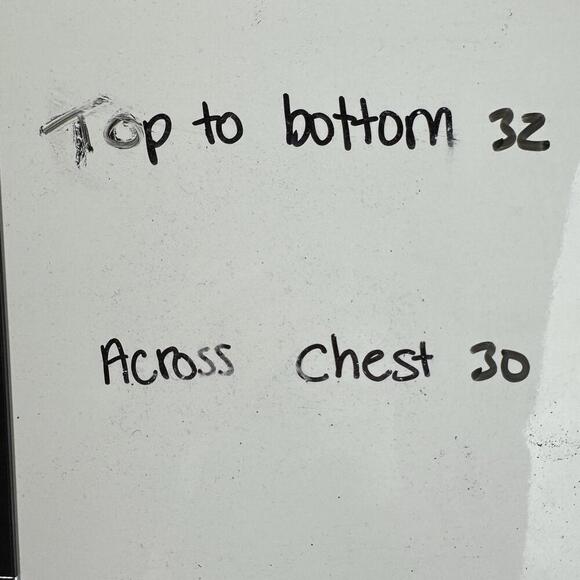 Top to bottom 32
Across Chest 30